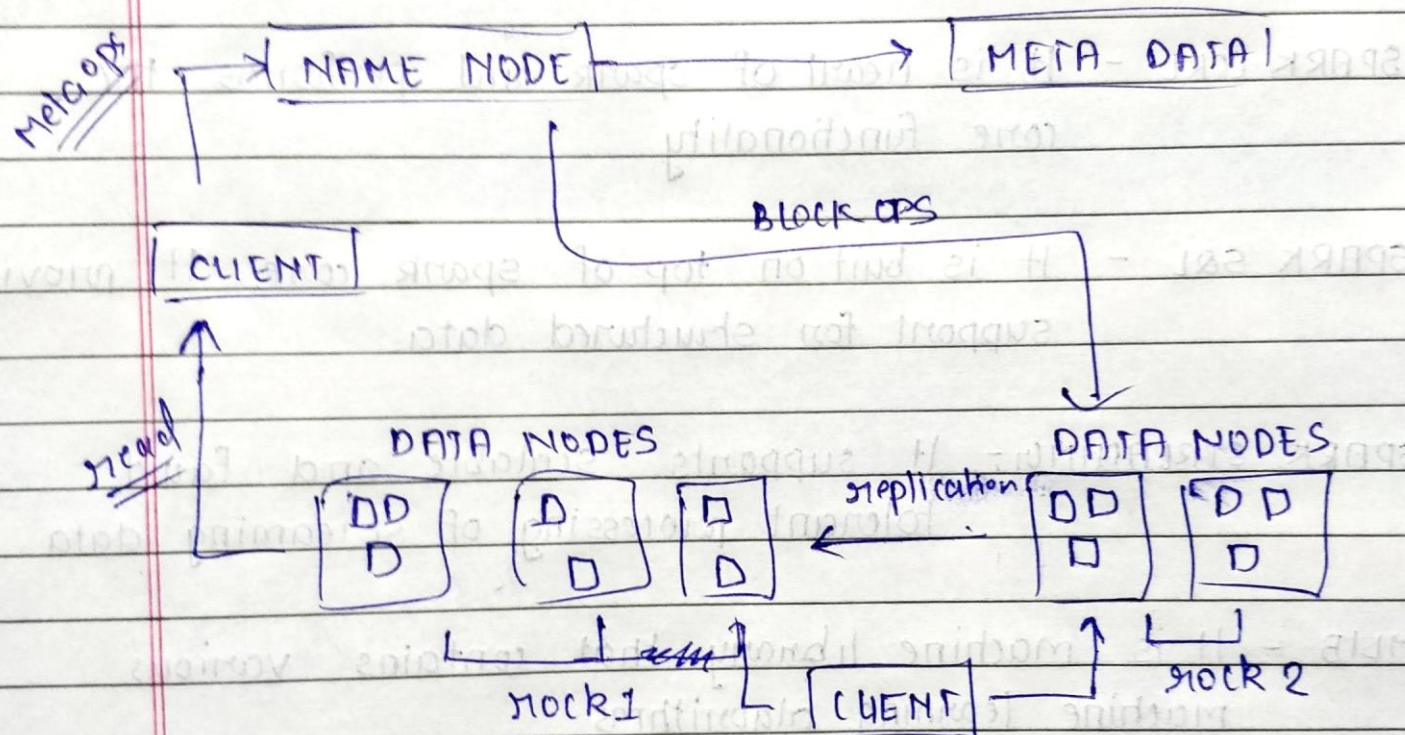 Meta op's
NAME NODE
META DATA
BLOCK OPS
CLIENT
read
DATA NODES
DATA NODES
replication
rock 1
CLIENT
rock 2